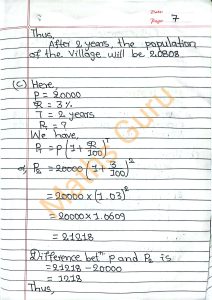 Date:
Page: 7
Thus,
After 2 years, the population
of the Village will be 20808.
(C) Here,
P = 20000
R = 3%
T = 2 years
P₂ = ?
We have,
P_T = P(1 + R/100)^T
or, P₂ = 20000(1 + 3/100)²
= 20000 × (1.03)²
= 20000 × 1.0609
= 21218
Difference betⁿ P and P₂ is
= 21218 - 20000
= 1218
Thus,
Maths Guru